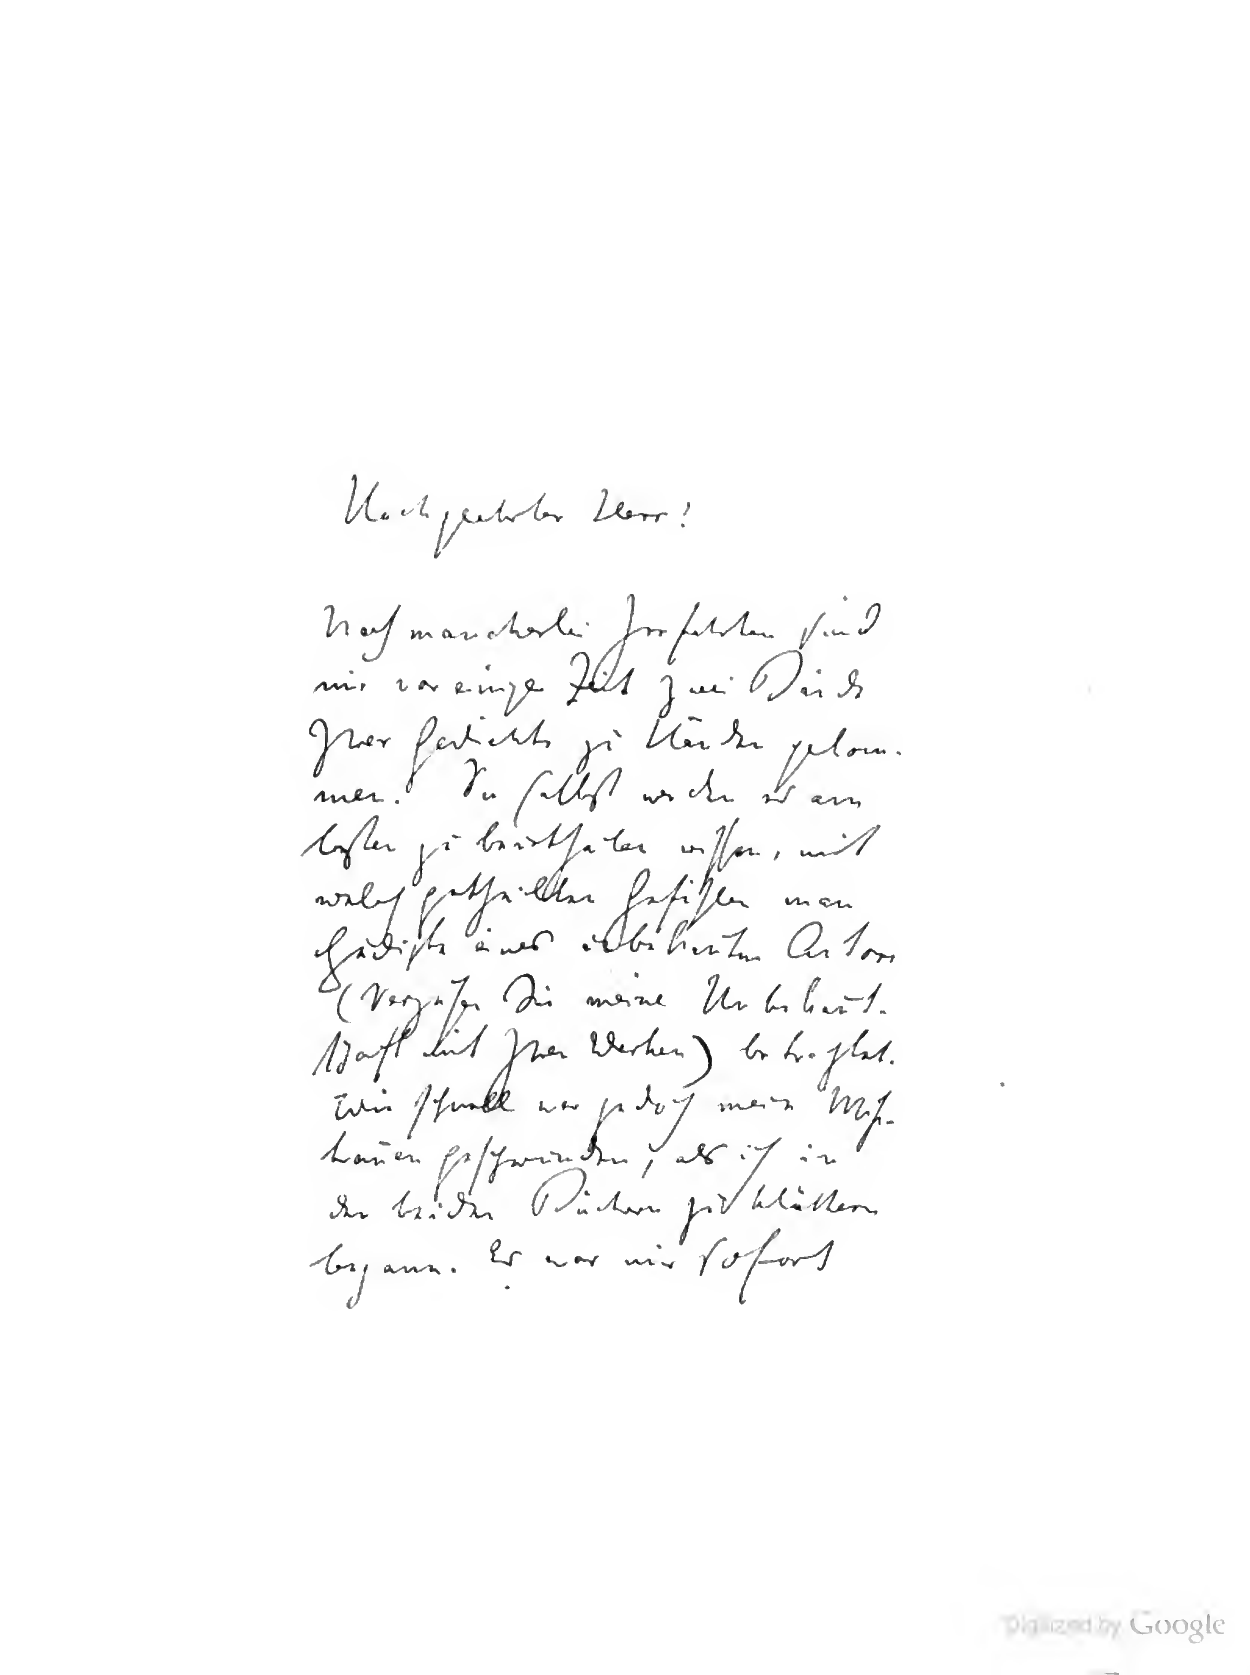 Hochgeehrter Herr!
Nach mancherlei Irrfahrten sind
mir vor einiger Zeit zwei Bände
Ihrer Gedichte zu Händen gekom-
men. Sie selbst werden es am
besten zu beurtheilen wissen, mit
welch getheilten Gefühlen man
Gedichte eines unbekannten Autors
(Verzeihen Sie meine Unbekannt-
schaft mit Ihren Werken) betrachtet.
Wie schnell war jedoch mein Miß-
trauen geschwunden, als ich in
den beiden Büchern zu blättern
begann. Es war mir sofort
Digitized by Google